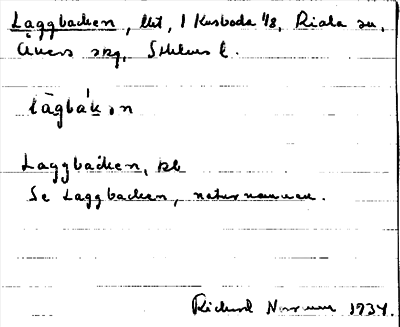 Laggbacken, lht, 1 Kusboda 1/8, Riala sn,
Åkers skg, Sthlms l.
làgbák.n
Laggbacken, pl
Se Laggbacken, naturnamnen.
Richard 1934.